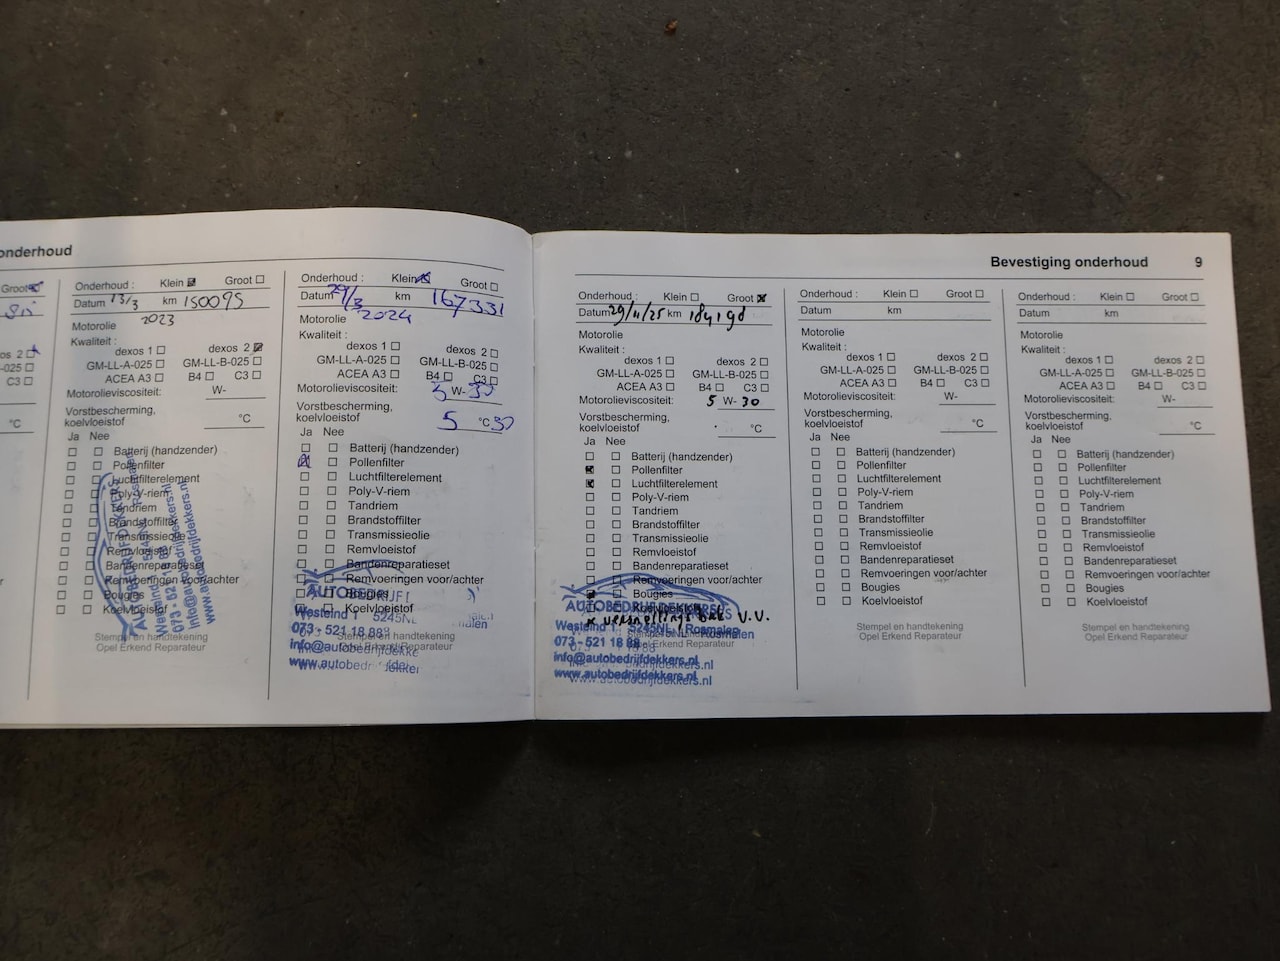 onderhoud
Groot
dexos 2
C3
°C
Onderhoud : Klein Groot
Datum 13/3 km 150095
2023
Motorolie
Kwaliteit :
dexos 1 dexos 2
GM-LL-A-025 GM-LL-B-025
ACEA A3 B4 C3
Motorolieviscositeit: W-
Vorstbescherming,
koelvloeistof °C
Ja Nee
Batterij (handzender)
Pollenfilter
Luchtfilterelement
Poly-V-riem
Tandriem
Brandstoffilter
Transmissieolie
Remvloeistof
Bandenreparatieset
Remvoeringen voor/achter
Bougies
Koelvloeistof
AUTOBEDRIJF DEKKERS
Westeind 1 5245NL Rosmalen
073 - 521 18 88
info@autobedrijfdekkers.nl
www.autobedrijfdekkers.nl
Stempel en handtekening
Opel Erkend Reparateur
Onderhoud : Klein Groot
Datum 29/3 km 167331
2024
Motorolie
Kwaliteit :
dexos 1 dexos 2
GM-LL-A-025 GM-LL-B-025
ACEA A3 B4 C3
Motorolieviscositeit: 5 W- 30
Vorstbescherming,
koelvloeistof 5 °C 30
Ja Nee
Batterij (handzender)
Pollenfilter
Luchtfilterelement
Poly-V-riem
Tandriem
Brandstoffilter
Transmissieolie
Remvloeistof
Bandenreparatieset
Remvoeringen voor/achter
Bougies
Koelvloeistof
AUTOBEDRIJF
Westeind 1 5245NL
073 - 521 18 88
info@autobedrijfdekke
www.autobedrijfdekker
Stempel en handtekening
Opel Erkend Reparateur
Bevestiging onderhoud 9
Onderhoud : Klein Groot
Datum 29/11/25 km 184198
Motorolie
Kwaliteit :
dexos 1 dexos 2
GM-LL-A-025 GM-LL-B-025
ACEA A3 B4 C3
Motorolieviscositeit: 5 W- 30
Vorstbescherming,
koelvloeistof °C
Ja Nee
Batterij (handzender)
Pollenfilter
Luchtfilterelement
Poly-V-riem
Tandriem
Brandstoffilter
Transmissieolie
Remvloeistof
Bandenreparatieset
Remvoeringen voor/achter
Bougies
Koelvloeistof
x versnellings bak v.v.
AUTOBEDRIJF DEKKERS
Westeind 1 5245NL Rosmalen
073 - 521 18 88
info@autobedrijfdekkers.nl
www.autobedrijfdekkers.nl
Stempel en handtekening
Opel Erkend Reparateur
Onderhoud : Klein Groot
Datum km
Motorolie
Kwaliteit :
dexos 1 dexos 2
GM-LL-A-025 GM-LL-B-025
ACEA A3 B4 C3
Motorolieviscositeit: W-
Vorstbescherming,
koelvloeistof °C
Ja Nee
Batterij (handzender)
Pollenfilter
Luchtfilterelement
Poly-V-riem
Tandriem
Brandstoffilter
Transmissieolie
Remvloeistof
Bandenreparatieset
Remvoeringen voor/achter
Bougies
Koelvloeistof
Stempel en handtekening
Opel Erkend Reparateur
Onderhoud : Klein Groot
Datum km
Motorolie
Kwaliteit :
dexos 1 dexos 2
GM-LL-A-025 GM-LL-B-025
ACEA A3 B4 C3
Motorolieviscositeit: W-
Vorstbescherming,
koelvloeistof °C
Ja Nee
Batterij (handzender)
Pollenfilter
Luchtfilterelement
Poly-V-riem
Tandriem
Brandstoffilter
Transmissieolie
Remvloeistof
Bandenreparatieset
Remvoeringen voor/achter
Bougies
Koelvloeistof
Stempel en handtekening
Opel Erkend Reparateur